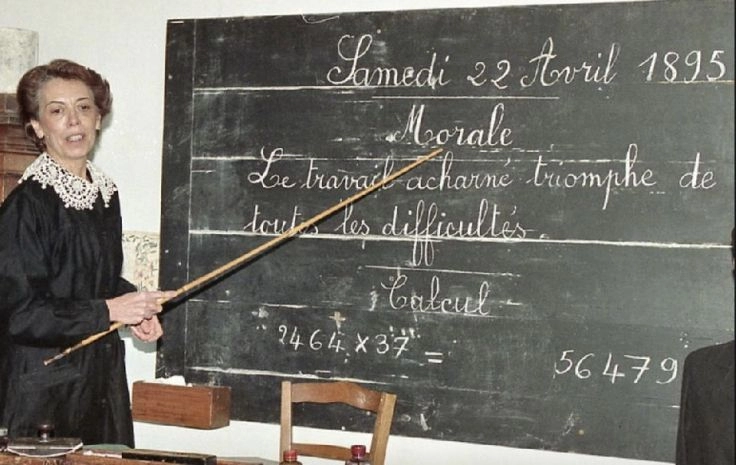 Samedi 22 Avril 1895
Morale
Le travail acharné triomphe de
toutes les difficultés.
Calcul
2464 x 37 =
56479